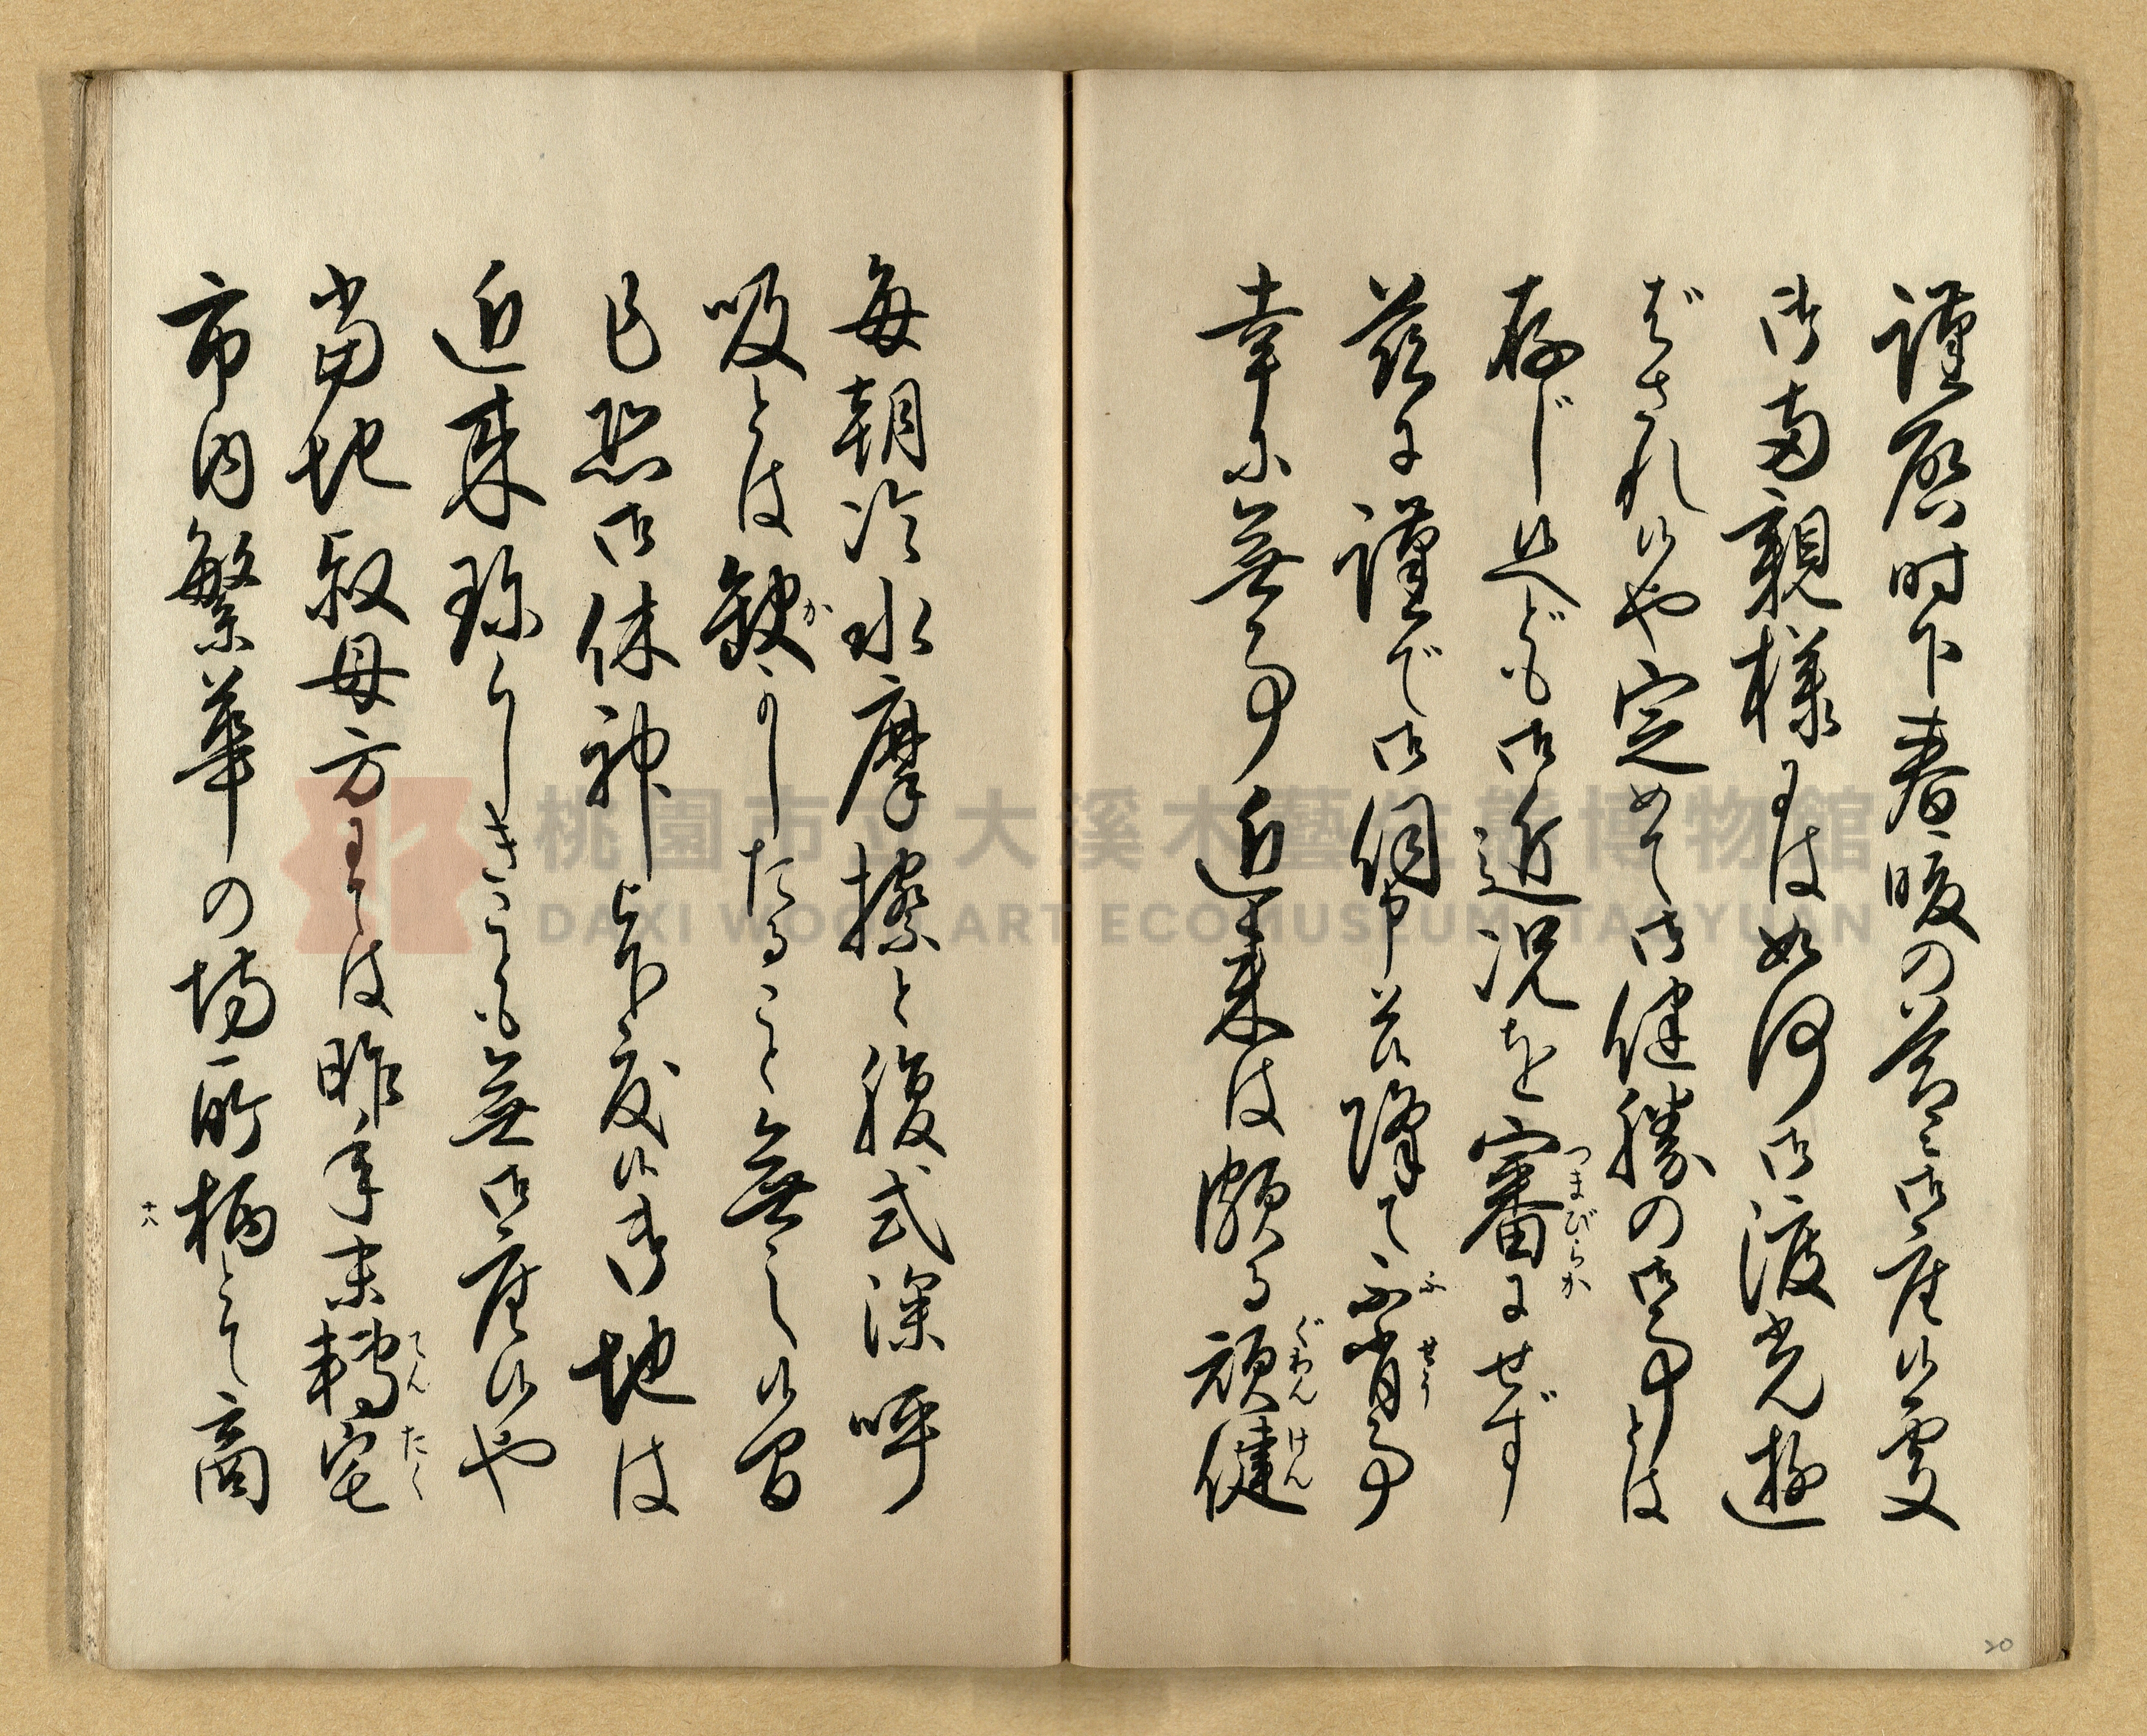 謹啓時下春暖の益々御座候處
御両親様には如何御渡光遊
ばされ候や定めて御健勝の御事とは
存じ候へども御近況を審にせず
つまびらか
茲に謹で御伺申上候降て不肖事
ふせう
幸に無事近來は頗る頑健
ぐわんけん
毎朝冷水摩擦と腹式深呼
吸とは缺かしたること無之候間
か
乍恐御休神被下度候御地は
近來珍らしきことも無御座候や
當地叔母方にては昨年末轉宅
てんたく
市内繁華の場所柄とて商
十八
20
桃園市立大溪木藝生態博物館
DAXI WOOD ART ECOMUSEUM, TAOYUAN